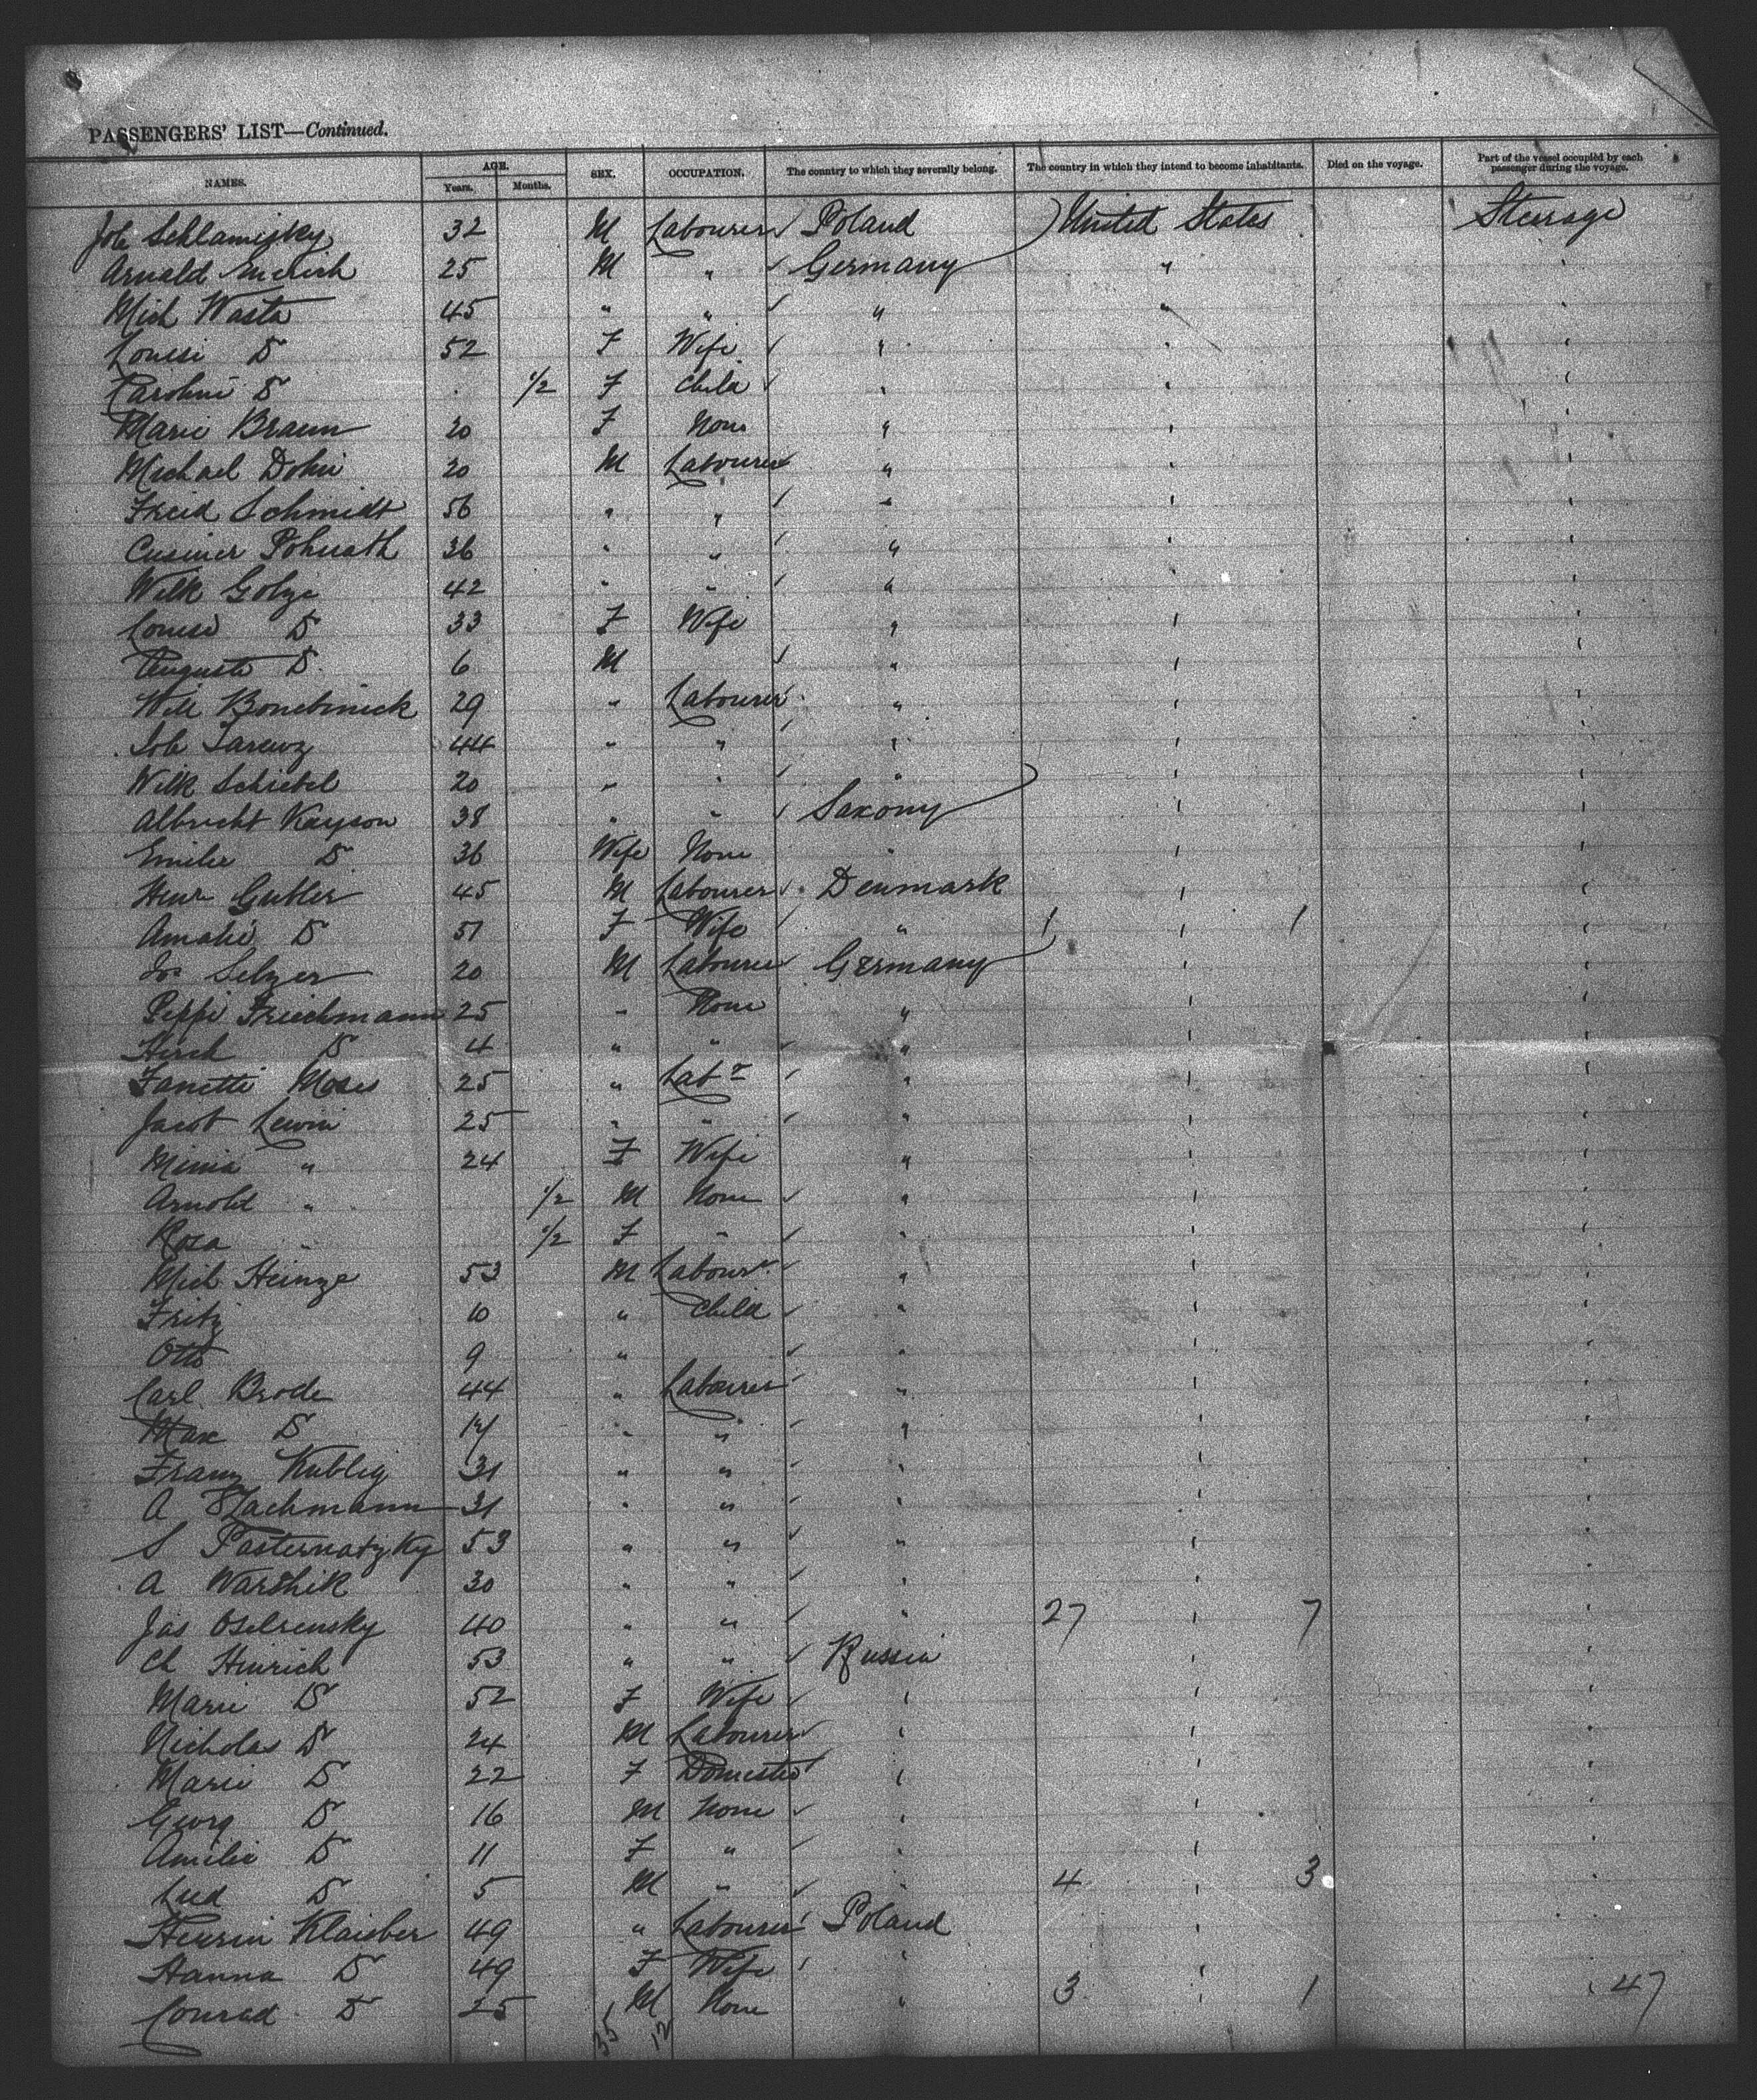 PASSENGERS' LIST—Continued.
NAMES. AGE. Years. Months. SEX. OCCUPATION. The country to which they severally belong. The country in which they intend to become inhabitants. Died on the voyage. Part of the vessel occupied by each passenger during the voyage.
Job 32 M Labourer ✓ Poland United States Steerage
Arnold 25 M " ✓ Germany " "
Mich Wasta 45 " " ✓ " " "
Louise D 52 F Wife ✓ " " "
Caroline D 1/2 F Child ✓ " " "
Marie Braun 20 F None " " "
Michael Dohn 20 M Labourer " " "
Freid Schmidt 56 " " ✓ " " "
Casimer Pohnath 36 " " ✓ " " "
Wilk Golze 42 " " ✓ " " "
Louise D 33 F Wife " " "
Auguste D. 6 M ✓ " " "
Will 29 " Labourer " " "
Job 44 " " ✓ " " "
Wilk Schiebel 20 " " ✓ " " "
Albrecht Kayson 38 " " ✓ Saxony " "
Emilie D 36 Wife None " " "
Henr Gubler 45 M Labourer ✓ Denmark " "
Amalie D 51 F Wife ✓ " 1 " 1 "
Jos Selzer 20 M Labourer ✓ Germany " "
Peppi Friechmann 25 " None " " "
Hersh D 4 " " ✓ " " "
Fanetti Moses 25 " Labr ✓ " " "
Jacob Lewin 25 " " ✓ " " "
Minia " 24 F Wife " " "
Arnold " 1/2 M None ✓ " " "
Rosa " 1/2 F " ✓ " " "
Mich Heinze 53 M Labourr ✓ " " "
Fritz 10 " Child ✓ " " "
Otto 9 " ✓ " " "
Carl Brode 44 " Labourer ✓ " " "
Max D 17 " " ✓ " " "
Franz Kublig 31 " " ✓ " " "
A 31 " " ✓ " " "
S Pasternatzky 53 " " ✓ " " "
A Warshik 30 " " ✓ " " "
Jas 40 " " ✓ " 27 " 7 "
Ch Hinrich 53 " " ✓ Russia " "
Marie D 52 F Wife ✓ " " "
Nicholas D 24 M Labourer ✓ " " "
Marie D 22 F Domestic ✓ " " "
Georg D 16 M None ✓ " " "
Amilie D 11 F " ✓ " " "
Lud D 5 M " ✓ " 4 " 3 "
Henrin Klaiber 49 " Labourer ✓ Poland " "
Hanna D 49 F Wife ✓ " " "
Conrad D 25 M None " 3 " 1 " 47
35 12